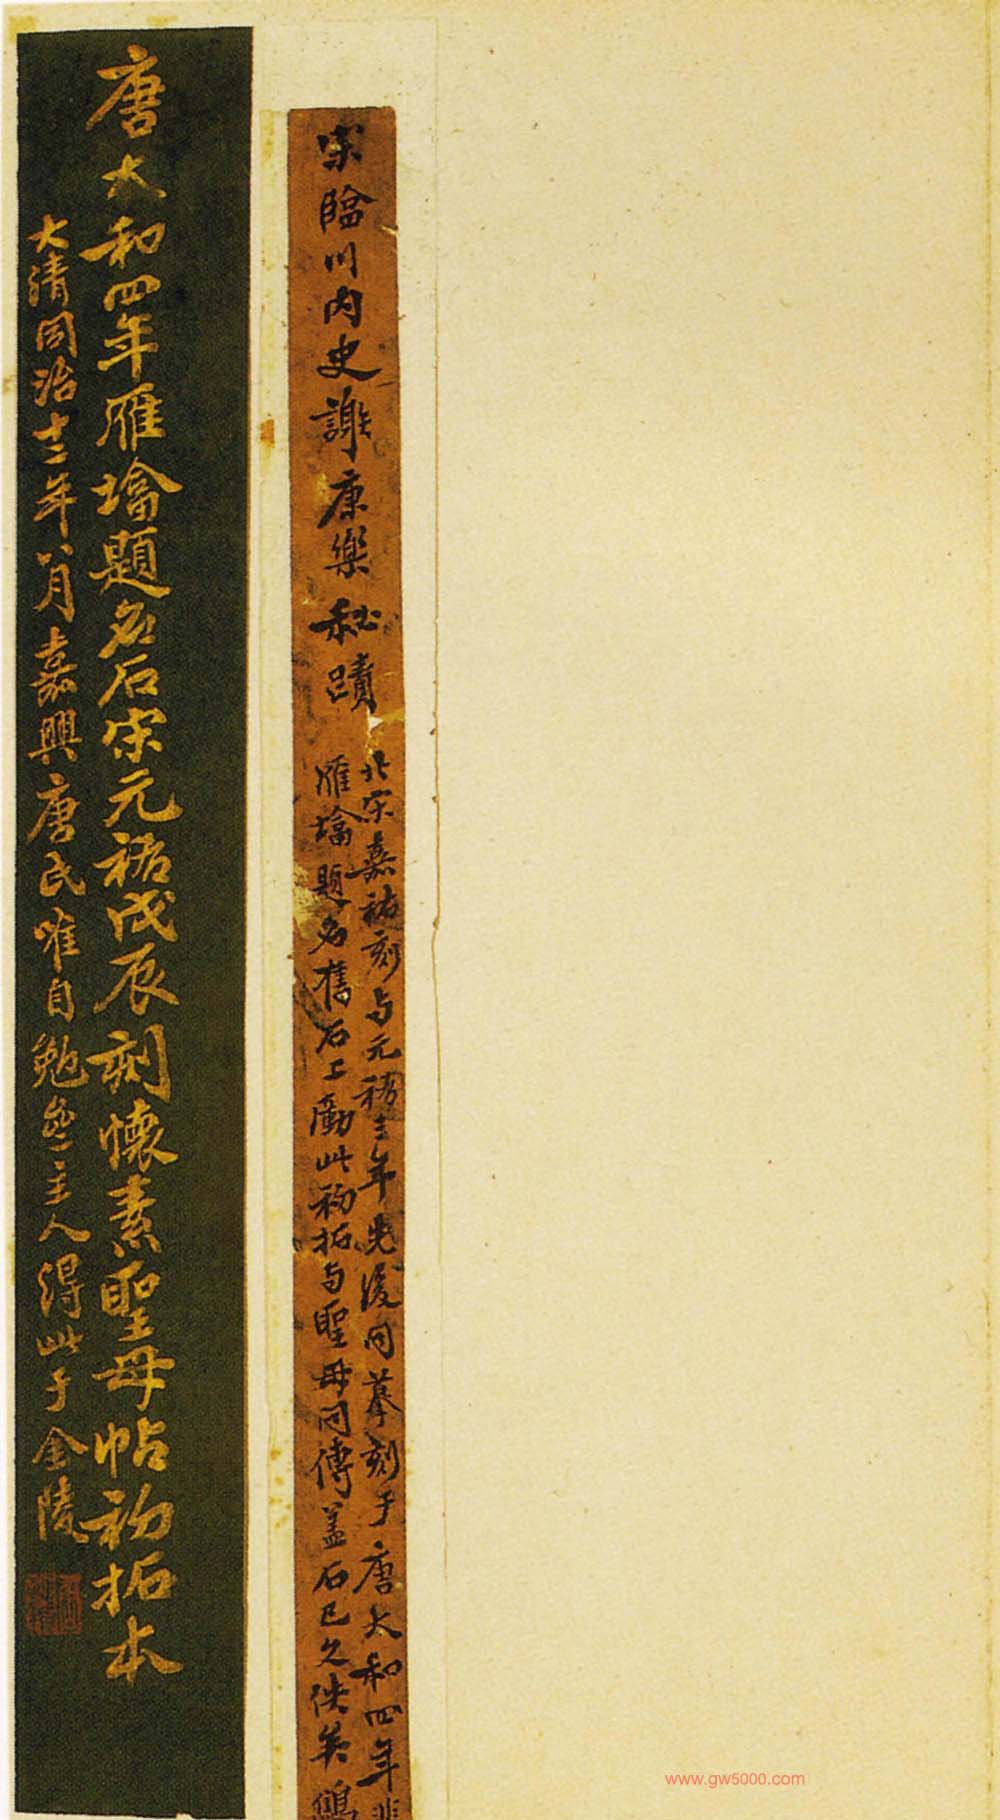 宋臨川內史謝康樂秘蹟
北宋嘉祐刻与元祐三年先後同摹刻于唐大和四年
雁塔題名舊石上此初拓与聖母同傳蓋石已久佚矣
唐大和四年雁塔題名石宋元祐戊辰刻懷素聖母帖初拓本
大清同治十二年八月嘉興唐氏唯自勉主人得此于金陵
www.gw5000.com